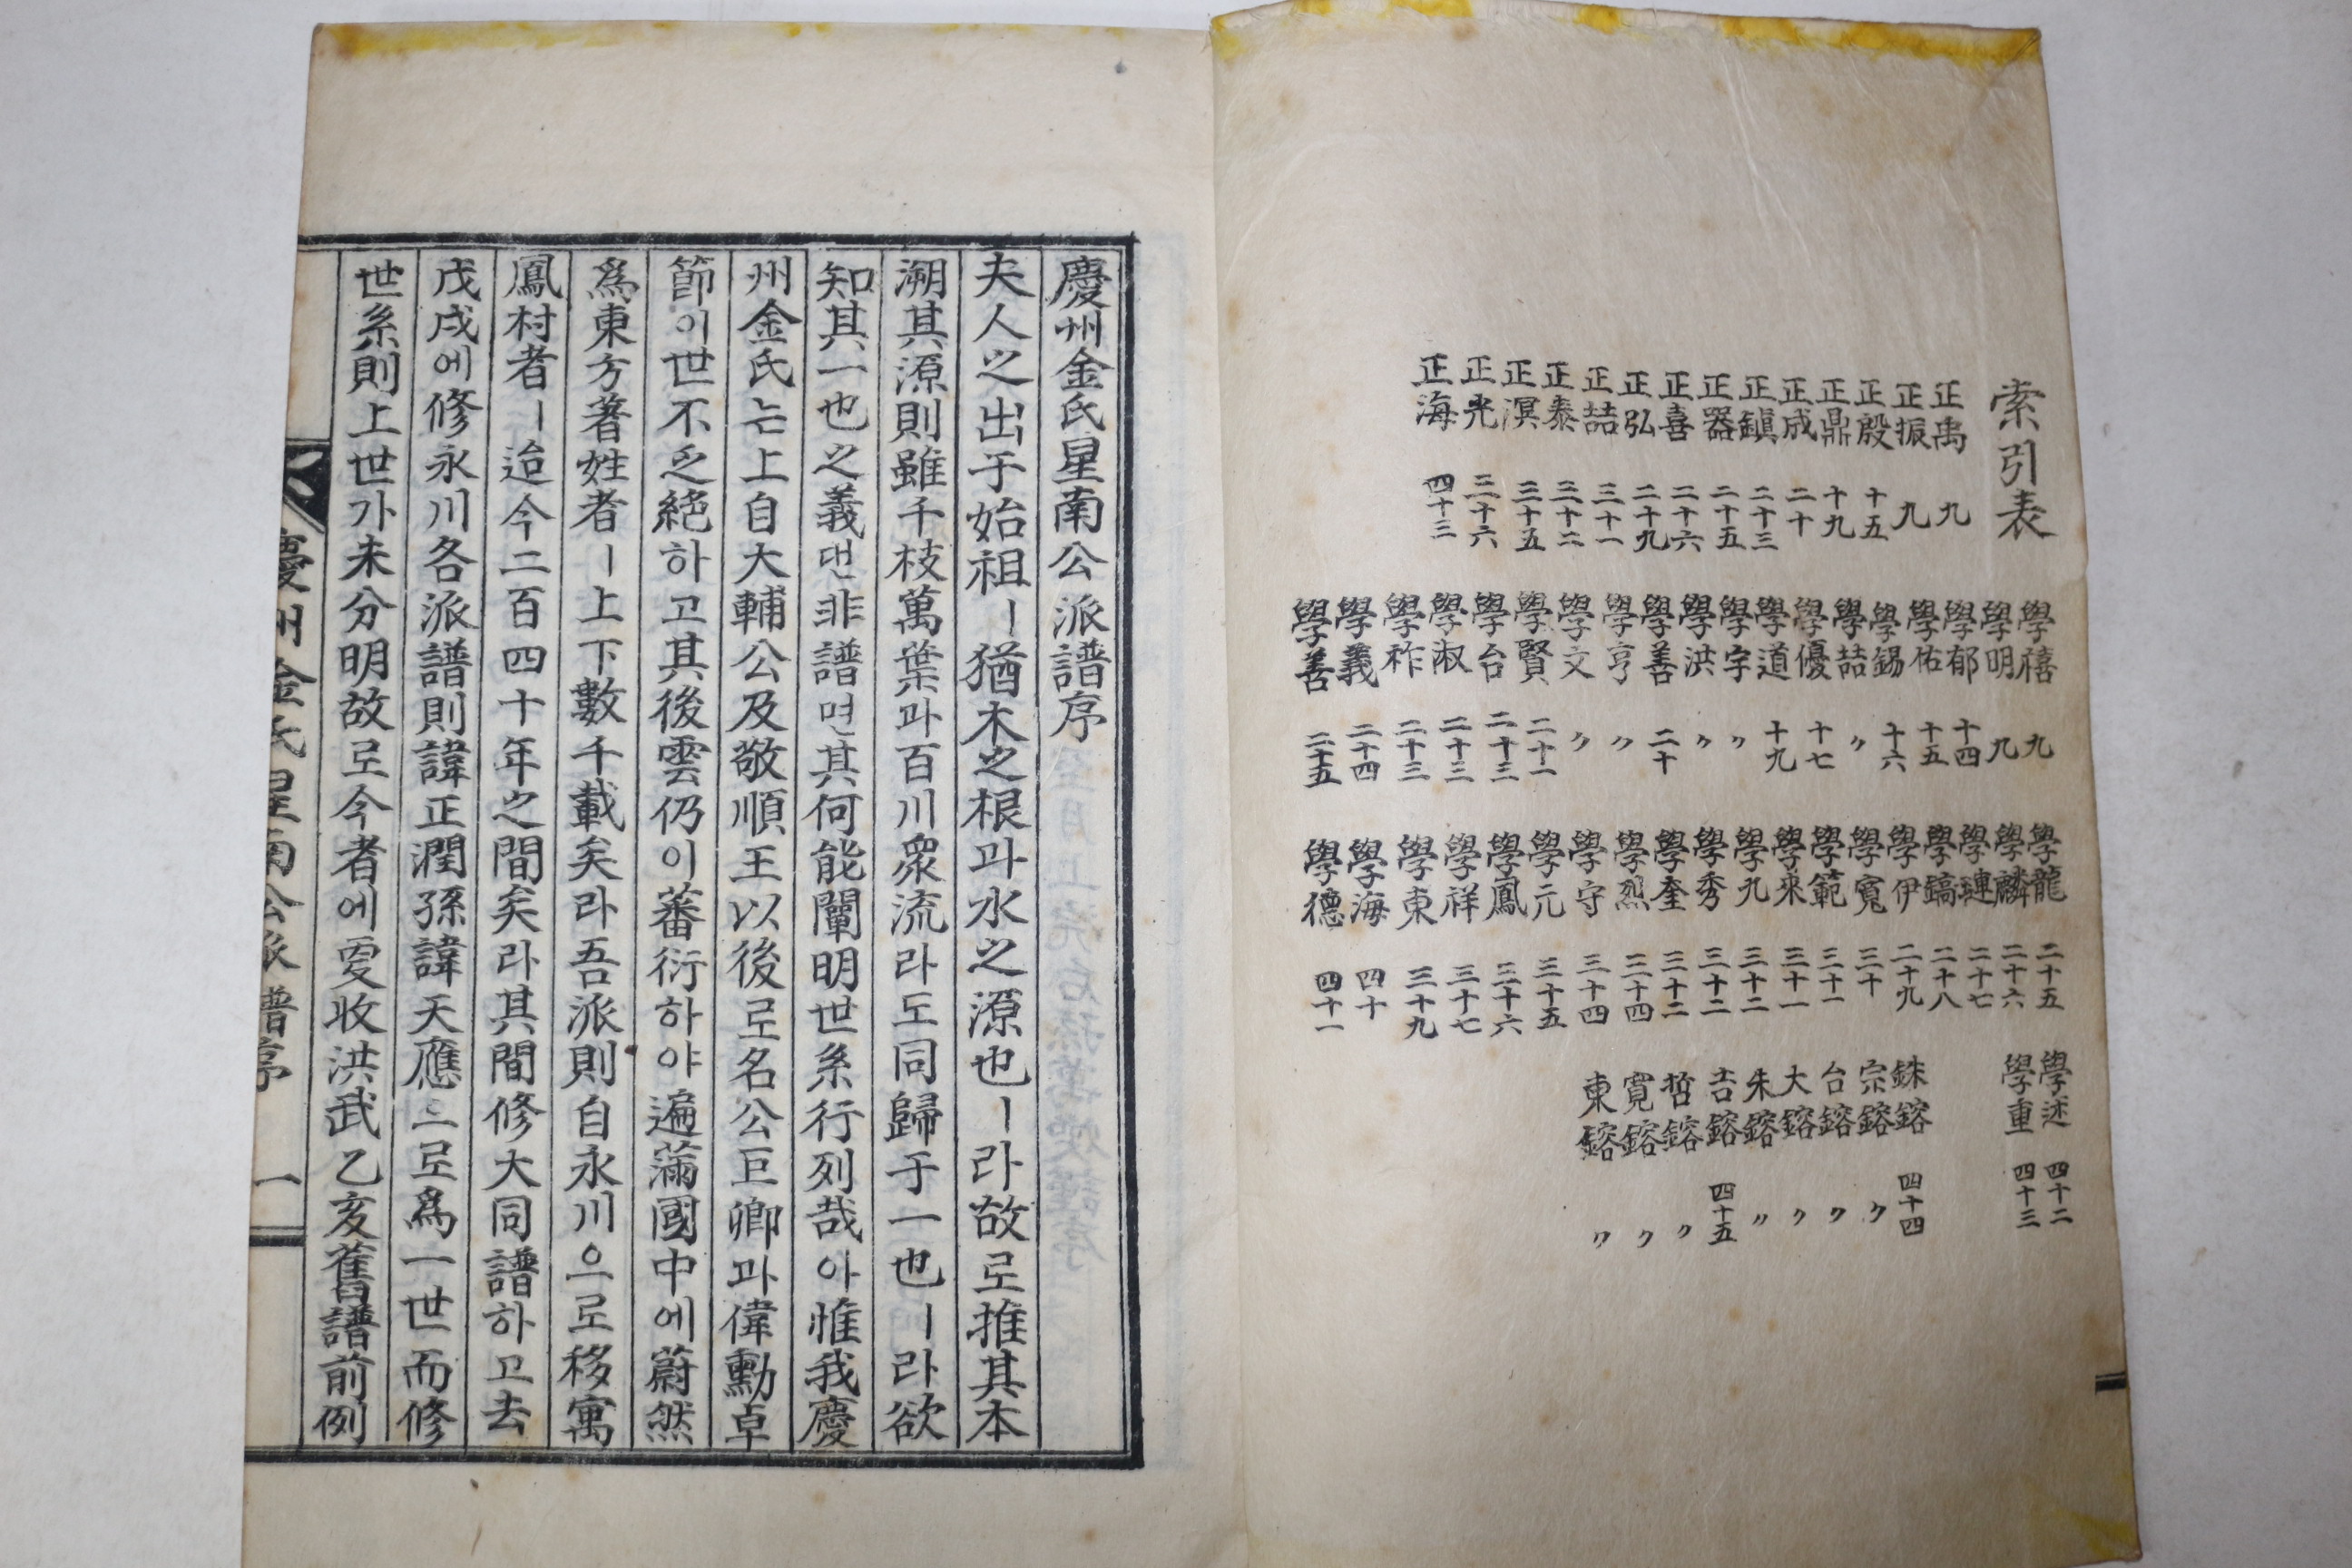 索引表
正禹 九
正振 九
正殷 十五
正鼎 十九
正成 二十
正鎭 二十三
正器 二十五
正喜 二十六
正弘 二十九
正喆 三十一
正泰 三十二
正溟 三十五
正光 三十六
正海 四十三
學禧 九
學明 九
學郁 十四
學佑 十五
學錫 十六
學喆 〃
學優 十七
學道 十九
學宇 〃
學洪 〃
學善 二十
學亨 〃
學文 〃
學賢 二十一
學台 二十三
學淑 二十三
學祚 二十三
學義 二十四
學善 二十五
學龍 二十五
學麟 二十六
學璉 二十七
學鎬 二十八
學伊 二十九
學寬 三十
學範 三十一
學來 三十一
學九 三十二
學秀 三十二
學奎 三十二
學烈 三十四
學守 三十四
學元 三十五
學鳳 三十六
學祥 三十七
學東 三十九
學海 四十
學德 四十一
學述 四十二
學重 四十三
銖鎔 四十四
宗鎔 〃
台鎔 〃
大鎔 〃
朱鎔 〃
吉鎔 四十五
哲鎔 〃
寬鎔 〃
東鎔 〃
慶州金氏星南公派譜序
夫人之出于始祖ㅣ猶木之根과水之源也ㅣ라故로推其本
溯其源則雖千枝萬葉과百川衆流라도同歸于一也ㅣ라欲
知其一也之義댄非譜면其何能闡明世系行列哉아惟我慶
州金氏는上自大輔公及敬順王以後로名公巨卿과偉勳卓
節이世不乏絕하고其後雲仍이蕃衍하야遍滿國中에蔚然
爲東方著姓者ㅣ上下數千載矣라吾派則自永川으로移寓
鳳村者ㅣ迨今二百四十年之間矣라其間修大同譜하고去
戊戌에修永川各派譜則諱正潤孫諱天應으로爲一世而修
世系則上世가未分明故로今者에更收洪武乙亥舊譜前例
慶州金氏星南公派譜序 一